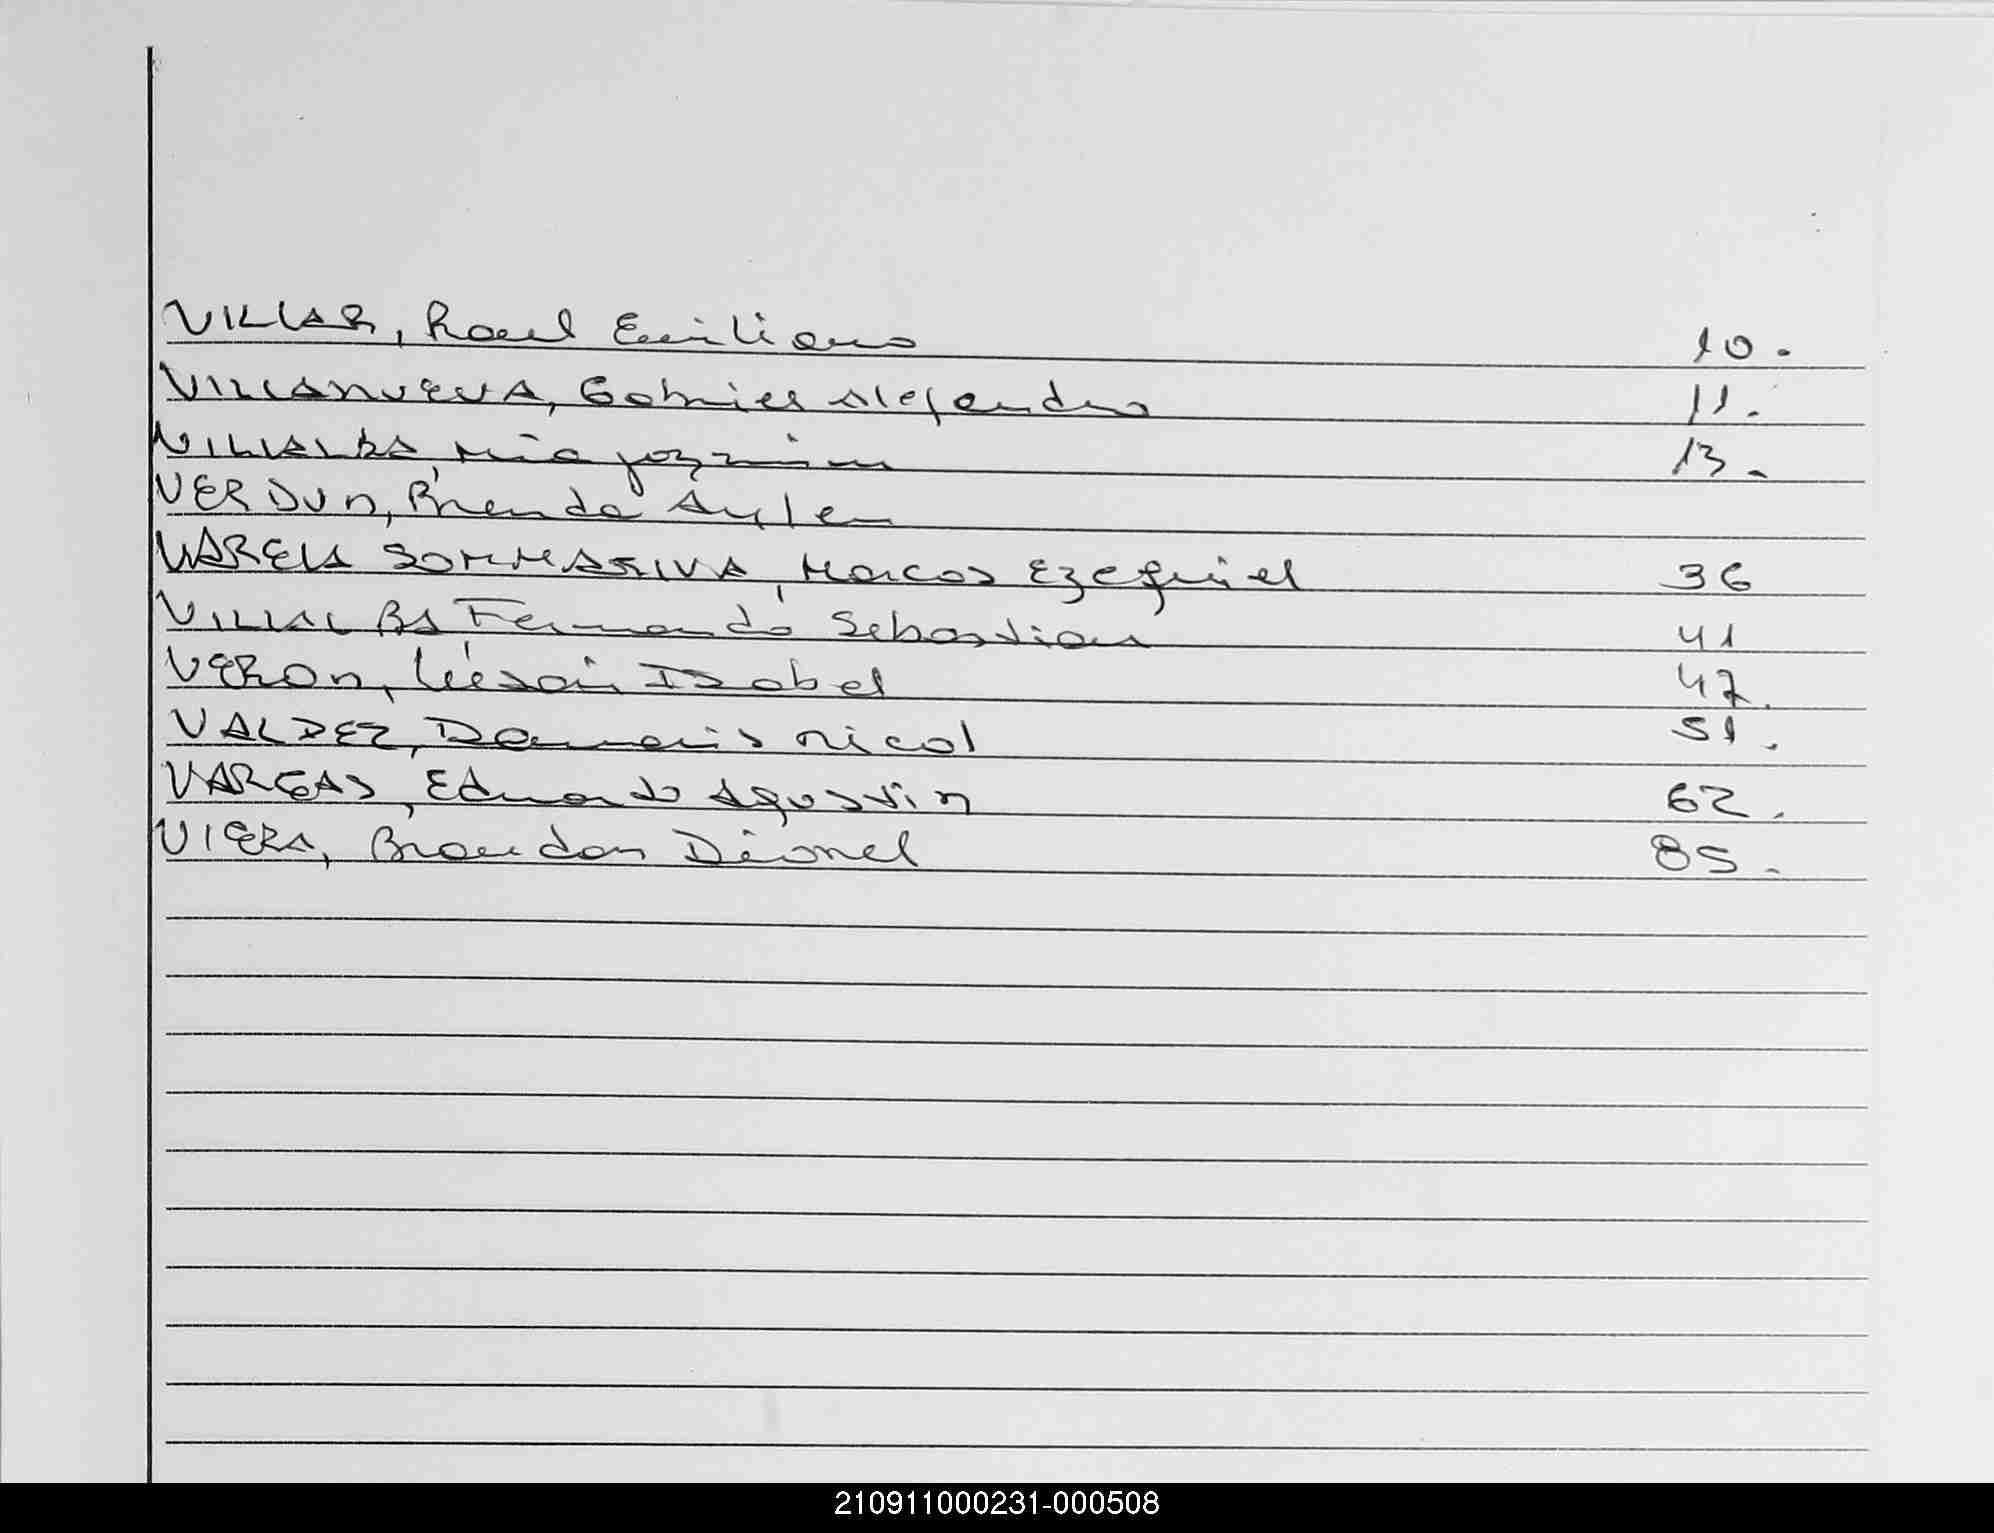 VILLAR, Raul Emiliano 10.
VILLANUEVA, Gabriel Alejandro 11.
VILLALBA, Mia Jazmin 13.
VERDUN, Brenda Aylen
VARELA SOMMARIVA, Marcos Ezequiel 36
VILLALBA, Fernando Sebastian 41
VERON, Isabel 47.
VALDEZ, Damaris Nicol 51.
VARGAS, Eduardo Agustin 62.
VIERA, Brandon Dionel 85.
210911000231-000508